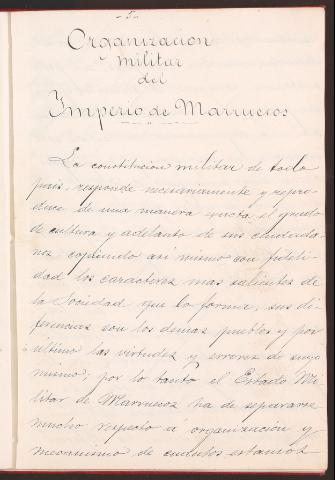 - 5 -
Organizacion
militar
del
Imperio de Marruecos
La constitucion militar de todo
pais, responde necesariamente y repro-
duce de una manera exacta el grado
de cultura y adelanto de sus ciudada-
nos, copiando asi mismo con fideli-
dad los caracteres mas salientes de
la Sociedad que lo forma, sus di-
ferencias con los demas pueblos y por
ultimo las virtudes y errores de suyo
mismo; por lo tanto el Estado Mi-
litar de Marruecos ha de separarse
mucho respecto a organizacion y
mecanismo de cuantos estamos